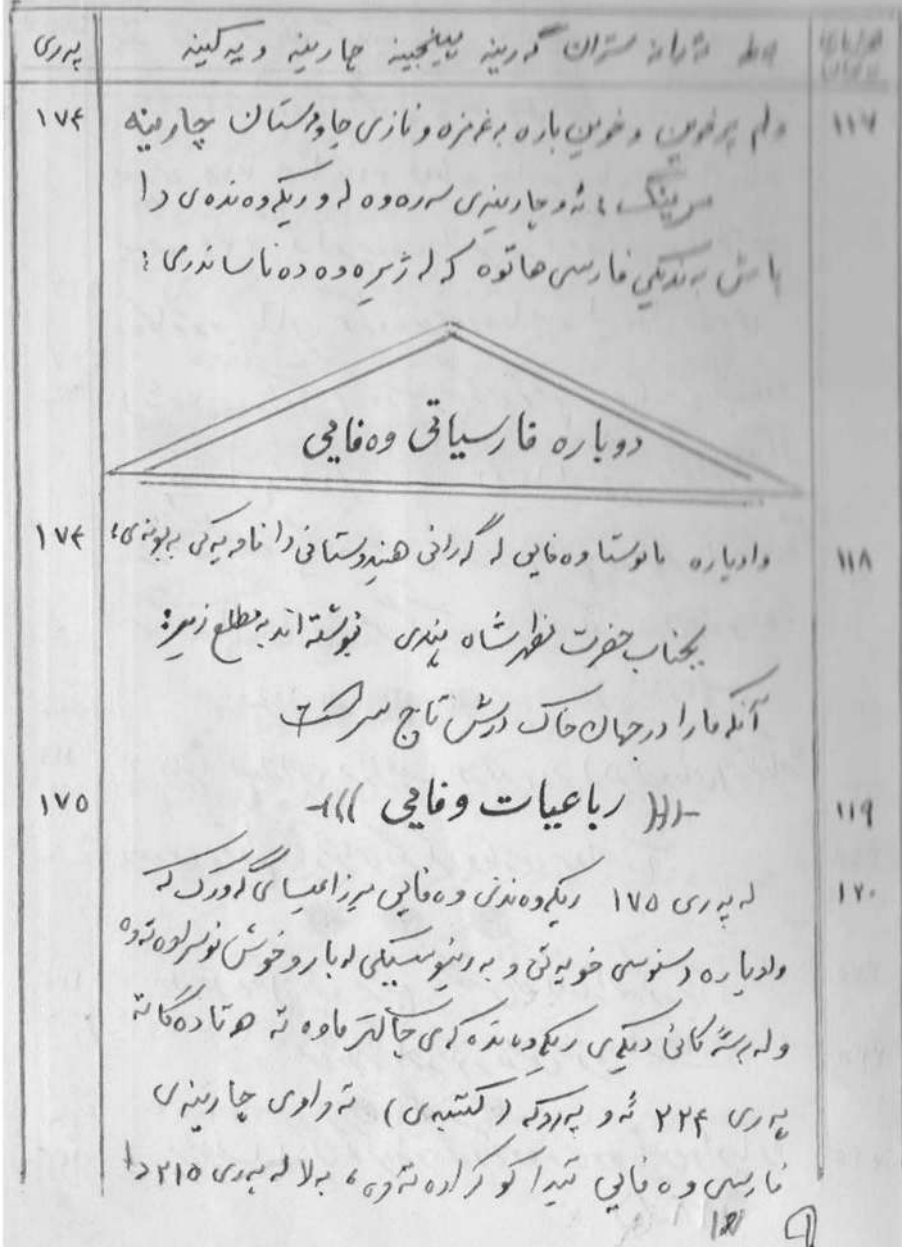 پەری
گەرینە پێنجینە چارینە و یەکینە
١١٧ دلم پرخون و خون بارە بە غمزە و نازی چاومستان چارینە ١٧٤
ئەو چارینەی سەرەوە لەو ریکەوەندەی دا
پاش بەندیکی فارسی هاتوە کە لە ژیرەوە دەناساندری :
دوبارە فارسیاتی وەفایی
١١٨ وادیارە ماموستا وەفایی لە گەرانی هیندوستانی دا نامەیەکی ١٧٤
بجناب حضرت شاه هندی نوشتەاند بە مطلع زیر:
آنکە مارا در جهان خاک درش تاج سرست
١١٩ رباعیات وفایی ١٧٥
١٧٠ لە پەری ١٧٥ ریکەوەندی وەفایی میرزا عیسای گەورک کە
وادیارە دسنوسی خویەتی و بە رینوسیکی لەبار و خوش نوسراوەتەوە
و لە بەشەکانی دیکەی ریکەوەندەکەی چاکتر ماوە تە هەتا دەگاتە
پەری ٢٢٤ ئەو پەروکە (کتێبەی) تەواوی چارینەی
فارسی وەفایی تیدا کو کراوەتەوە، بەلا لە پەری ٢١٥ دا